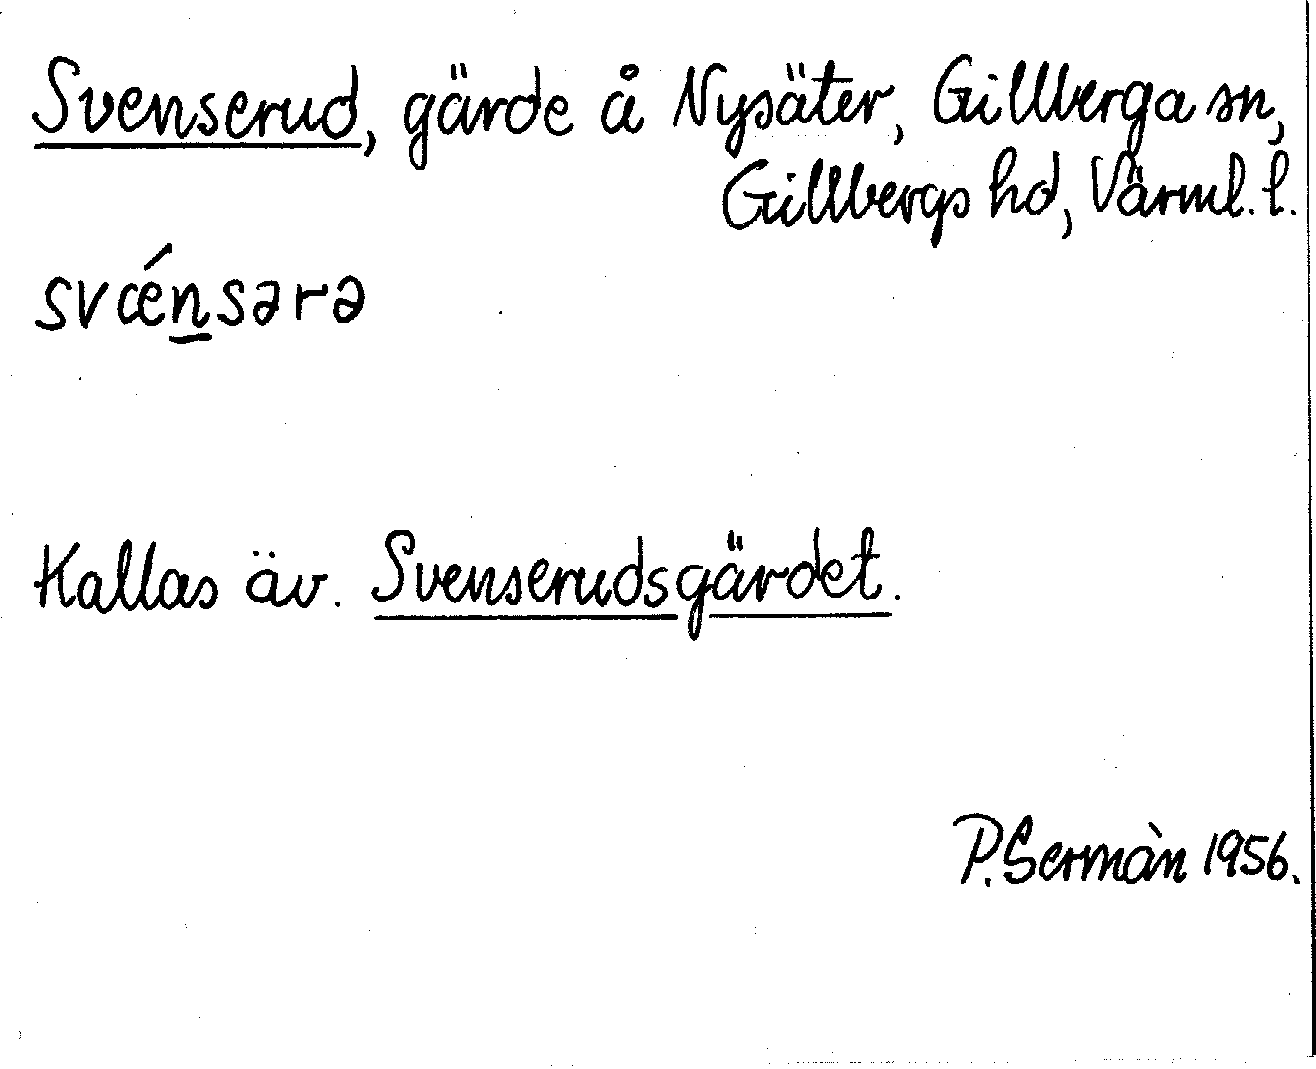 Svenserud, gärde å Nysäter, Gillberga sn,
Gillbergs hd, Värml. l.
svǽn̲sərə
Kallas äv. Svenserudsgärdet.
P. Sermàn 1956.